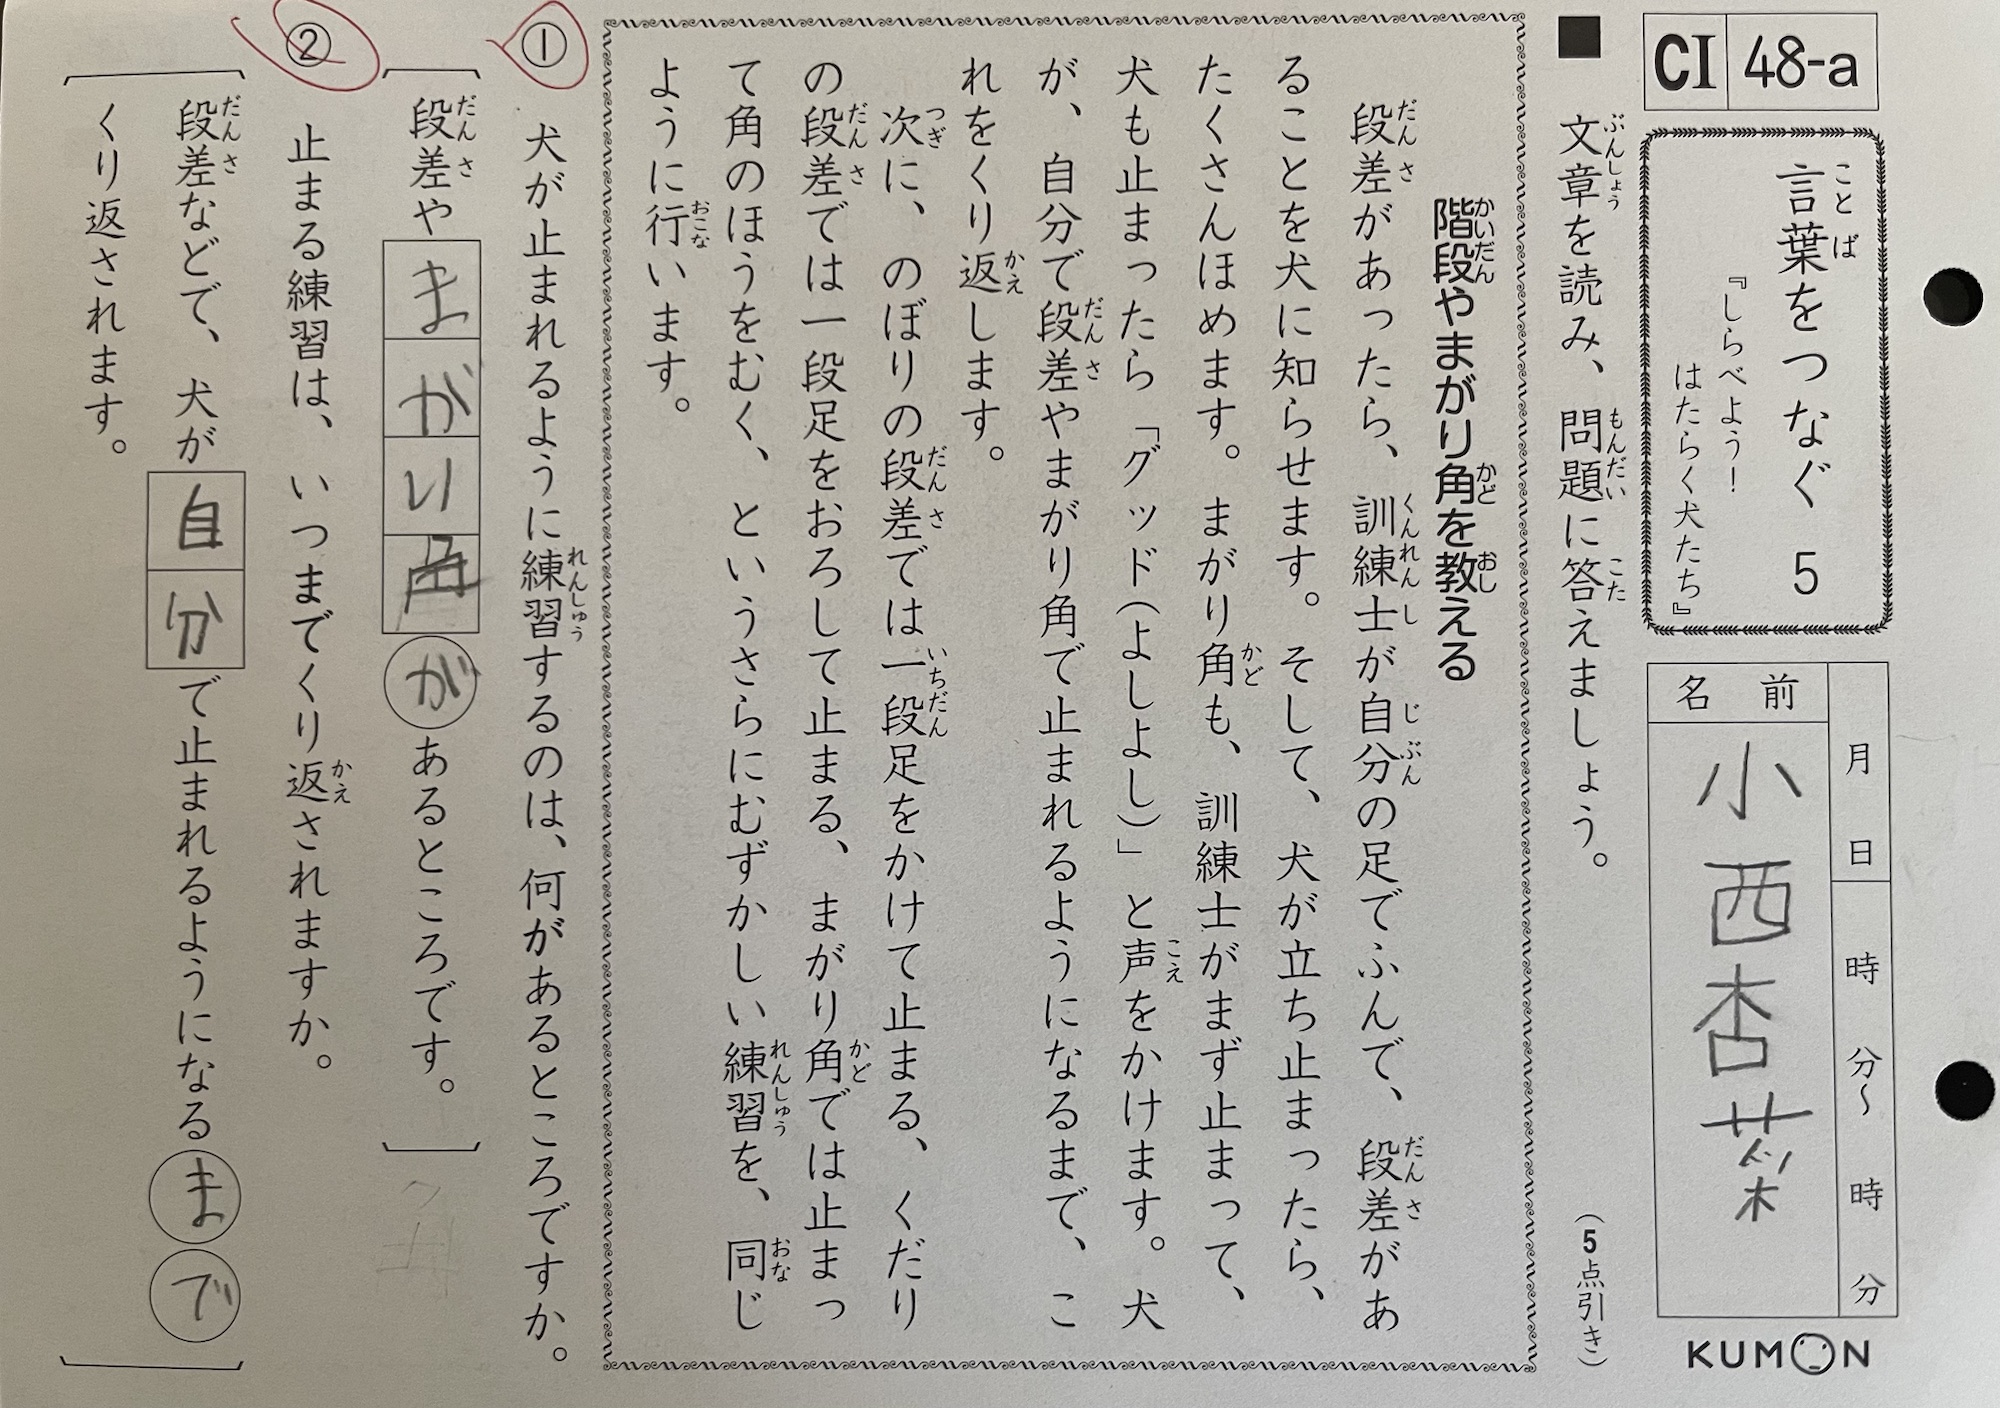 CI 48-a
言葉をつなぐ 5
『しらべよう!
はたらく犬たち』
月 日 時 分〜 時 分
名前
小西杏菜
KUMON
■ 文章を読み、問題に答えましょう。(5点引き)
階段やまがり角を教える
段差があったら、訓練士が自分の足でふんで、段差があ
ることを犬に知らせます。そして、犬が立ち止まったら、
たくさんほめます。まがり角も、訓練士がまず止まって、
犬も止まったら「グッド(よしよし)」と声をかけます。犬
が、自分で段差やまがり角で止まれるようになるまで、こ
れをくり返します。
次に、のぼりの段差では一段足をかけて止まる、くだり
の段差では一段足をおろして止まる、まがり角では止まっ
て角のほうをむく、というさらにむずかしい練習を、同じ
ように行います。
① 犬が止まれるように練習するのは、何があるところですか。
段差やまがり角があるところです。
② 止まる練習は、いつまでくり返されますか。
段差などで、犬が自分で止まれるようになるまで
くり返されます。